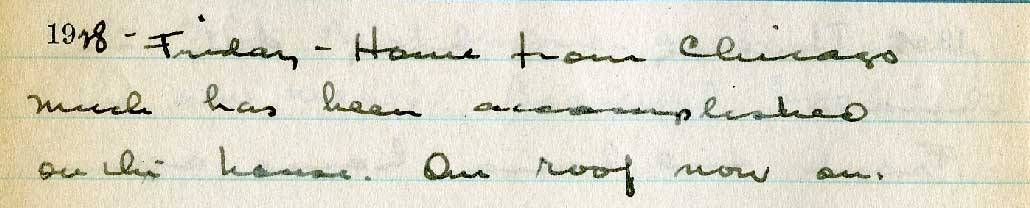 1928 - Friday - Home from Chicago
much has been accomplished
on the house. Our roof now on.